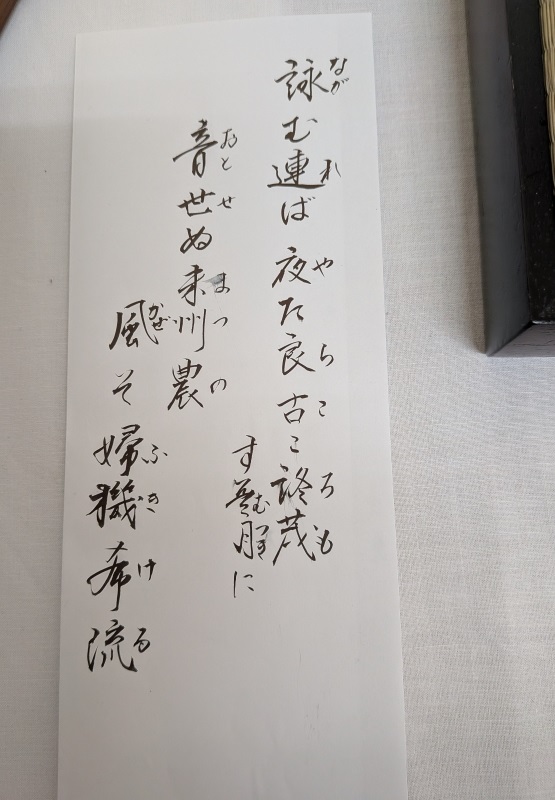 詠む連ば夜た良古こ茂
ながれやらころも
すに
む
音世ぬ末州農
おとせまつの
風そ婦機希流
かぜふきける